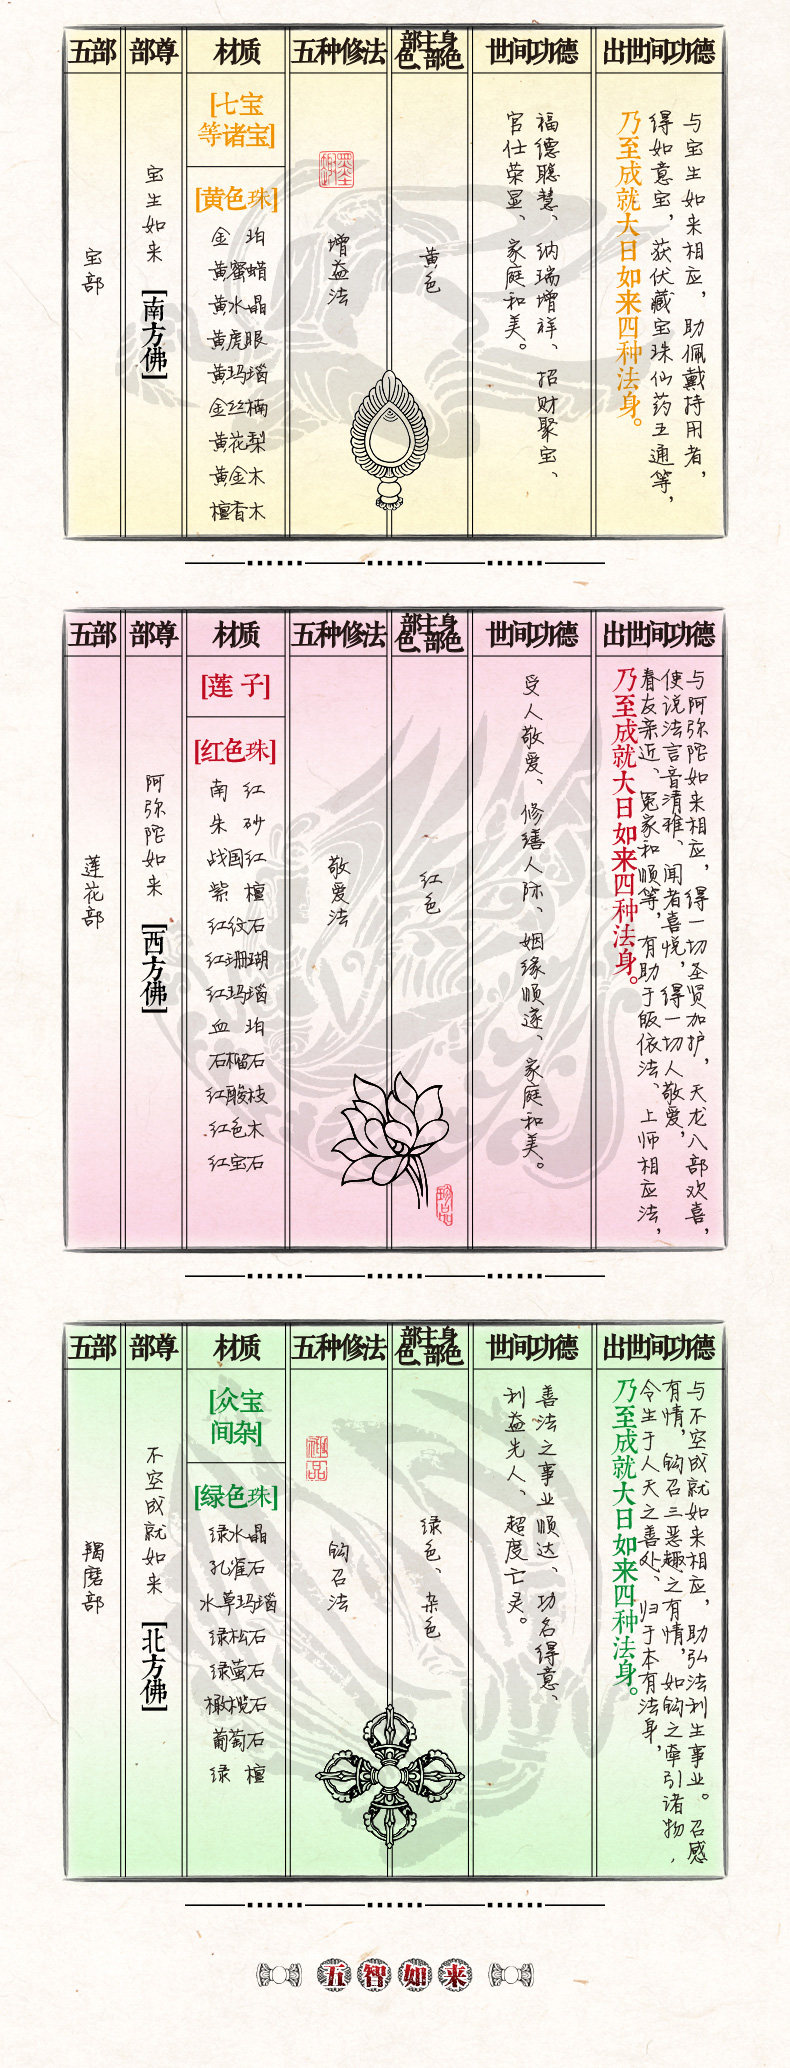 五部
部尊
材质
五种修法
部主身
色、部色
世间功德
出世间功德
宝部
宝生如来
[南方佛]
[七宝
等诸宝]
[黄色珠]
金珀
黄蜜蜡
黄水晶
黄虎眼
黄玛瑙
金丝楠
黄花梨
黄金木
檀香木
增益法
黄色
福德聪慧、纳瑞增祥、招财聚宝、
官仕荣显、家庭和美。
与宝生如来相应，助佩戴持用者，
得如意宝，获伏藏宝珠仙药五通等，
乃至成就大日如来四种法身。
五部
部尊
材质
五种修法
部主身
色、部色
世间功德
出世间功德
莲花部
阿弥陀如来
[西方佛]
[莲子]
[红色珠]
南红
朱砂
战国红
紫檀
红纹石
红珊瑚
红玛瑙
血珀
石榴石
红酸枝
红色木
红宝石
敬爱法
红色
受人敬爱、修缮人际、姻缘顺遂、家庭和美。
与阿弥陀如来相应，得一切圣贤加护，天龙八部欢喜，
使说法言音清雅、闻者喜悦，得一切人敬爱，
眷友亲近、冤家和顺等，有助于皈依法、上师相应法，
乃至成就大日如来四种法身。
五部
部尊
材质
五种修法
部主身
色、部色
世间功德
出世间功德
羯磨部
不空成就如来
[北方佛]
[众宝
间杂]
[绿色珠]
绿水晶
孔雀石
水草玛瑙
绿松石
绿萤石
橄榄石
葡萄石
绿檀
钩召法
绿色、杂色
善法之事业顺达、功名得意、
利益先人、超度亡灵。
与不空成就如来相应，助弘法利生事业。召感
有情，钩召三恶趣之有情，如钩之牵引诸物，
令生于人天之善处、归于本有法身，
乃至成就大日如来四种法身。
五智如来